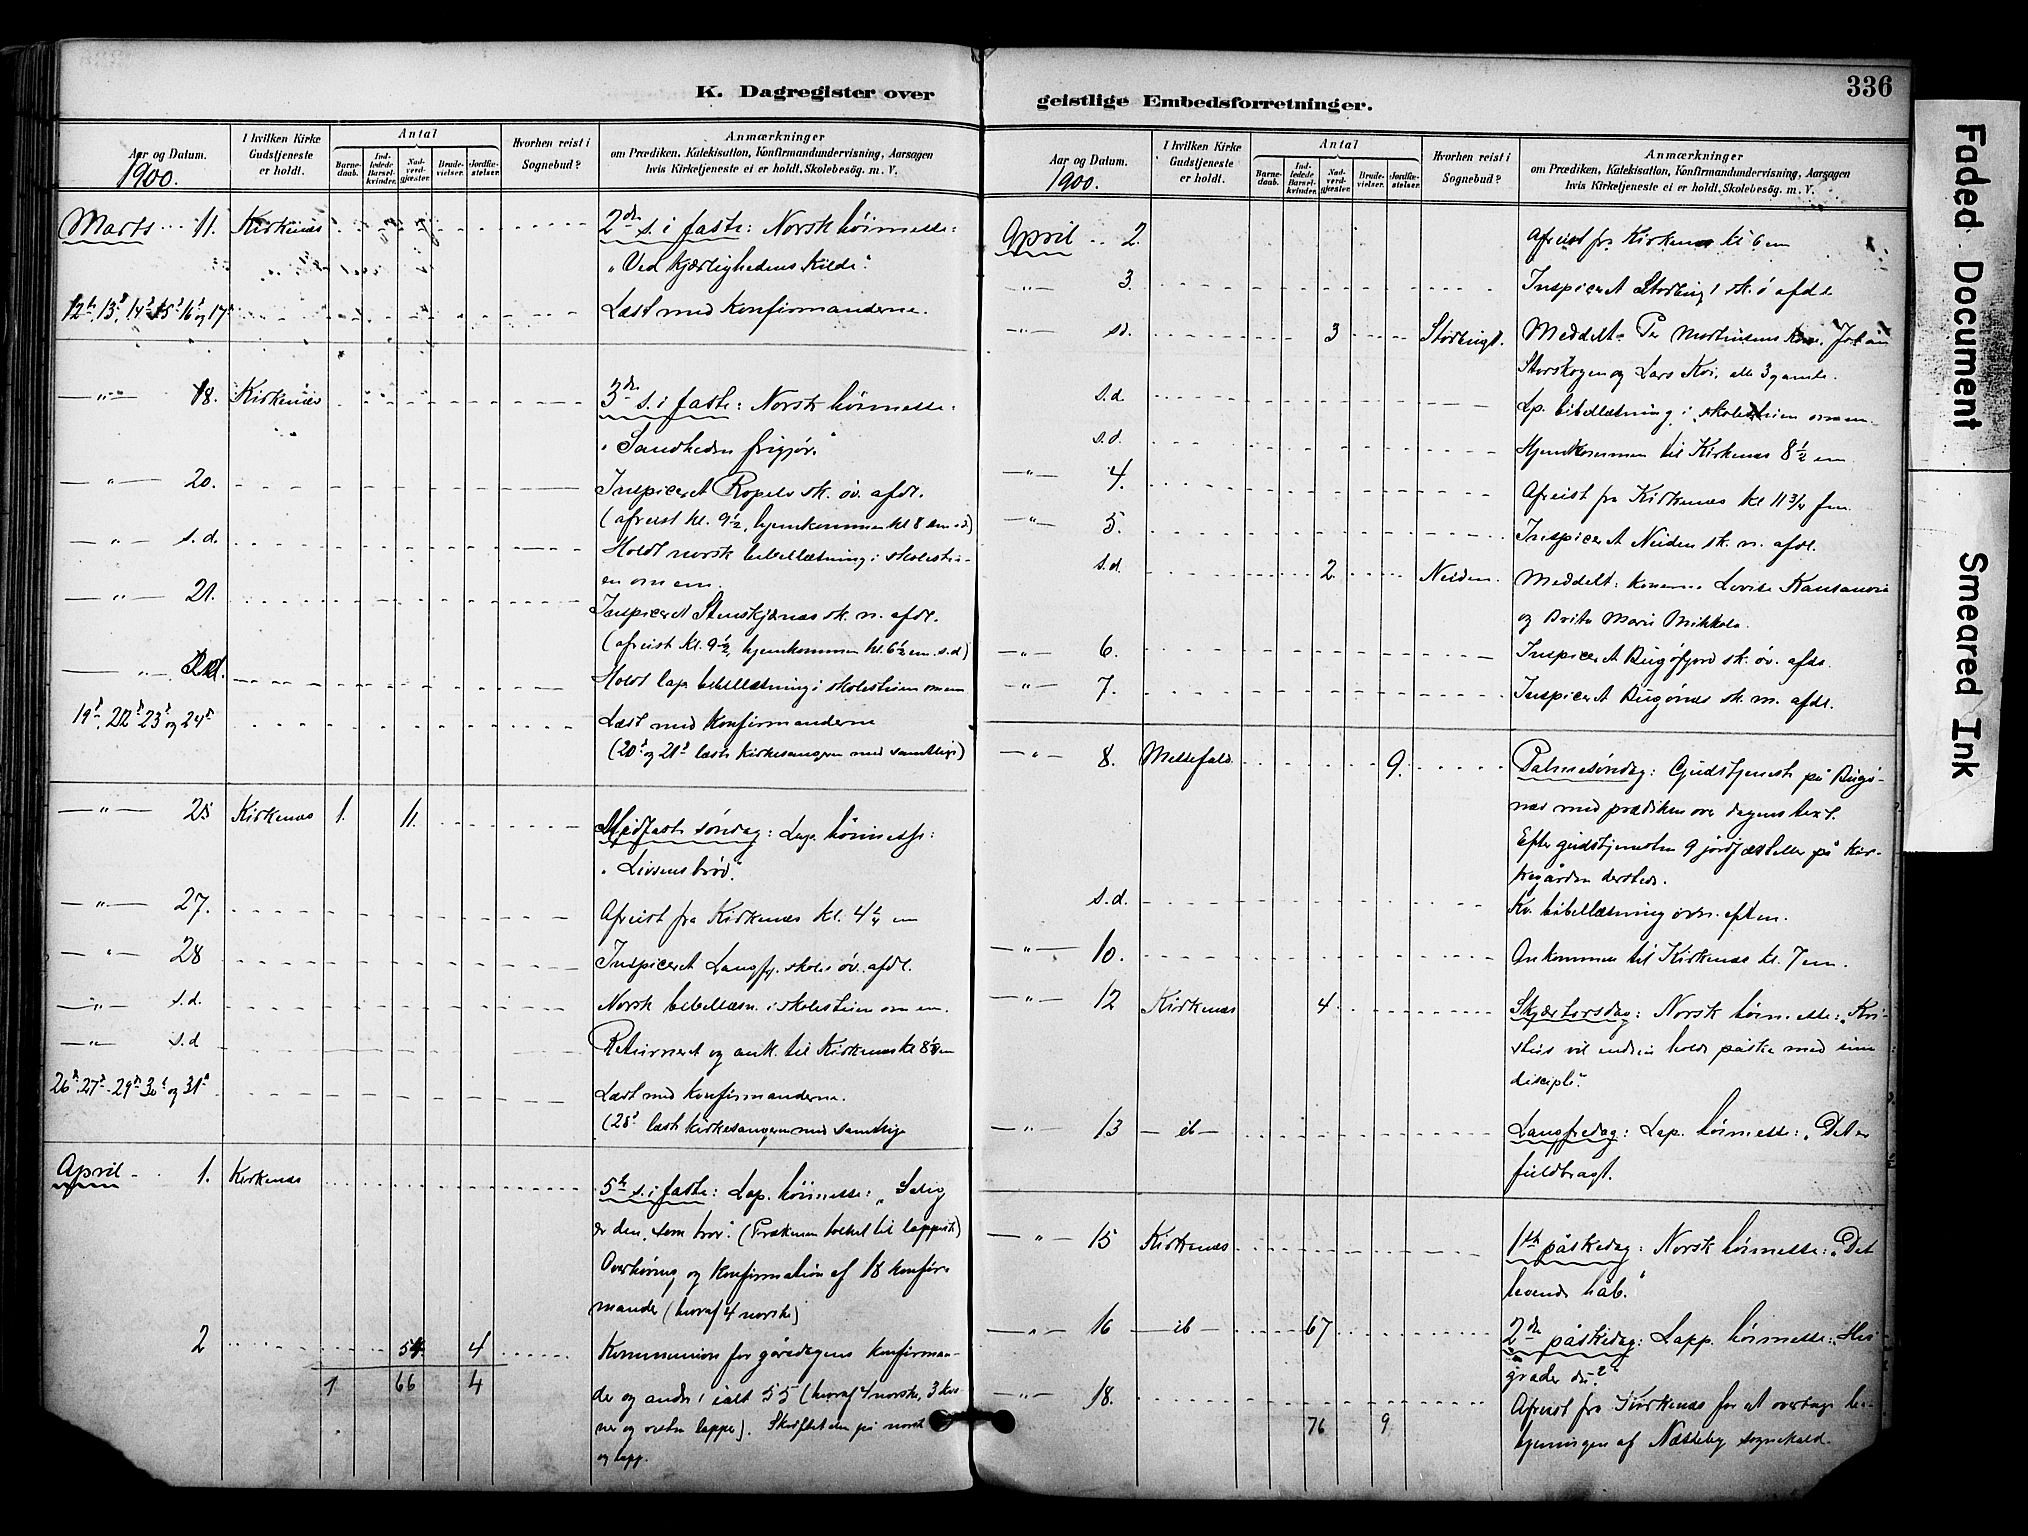 336
K. Dagregister over
Aar og Datum.
1900.
I hvilken Kirke Gudstjeneste er holdt.
Antal
Barne-daab.
Ind-ledede Barsel-kvinder.
Nad-verd-gjester.
Brude-vielser.
Jordfæ-stelser.
Hvorhen reist i Sognebud?
Anmærkninger
om Prædiken, Katekisation, Konfirmandundervisning, Aarsagen
hvis Kirketjeneste ei er holdt, Skolebesøg. m. V.
Marts 11. Kirkenæs 2den s. i faste: Norsk høimesse:
"Ved Kjærlighedens Kilde".
12te, 13de, 14de, 15de, 16de og 17de Læst med konfirmanderne.
—"— 18. Kirkenæs 3die s. i faste: Norsk høimesse:
"Sandheden frigjør"
—"— 20. Inspiceret Ropelv sk. øv. afdl.
(afreist kl. 9½, hjemkommen kl 8 em s.d)
—"— s.d. Holdt norsk bibellæsning i skolesti-
en om em.
—"— 21. Inspiceret Stenskjærnæs sk. n. afdl.
(afreist kl. 9½, hjemkommen kl. 6½ em. s.d)
—"— s.d. Holdt lap. bibellæsning i skolestuen om em
19de, 22de, 23de og 24de Læst med konfirmanderne
(20de og 21de læste kirkesangeren med samtlige)
—"— 25 Kirkenæs 1. 11. Midfaste søndag: Lap. høimesse:
"Livsens brød".
—"— 27. Afreist fra Kirkenæs kl. 4¼ em
—"— 28 Inspiceret Langfj. skoles øv. afdl.
—"— s.d. Norsk bibellæsn. i skolestuen om em.
—"— s.d Returneret og ank. til Kirkenæs kl 8½ em
26de, 27de, 29de, 30te og 31te Læst med konfirmanderne.
(28de læste kirkesangeren med samtlige
April 1. Kirkenæs 5te s. i faste: Lap. høimesse: "Salig
er den, som tror". (Prækenen tolket til lappisk)
Overhøring og konfirmation af 18 konfir-
mander (hvoraf 4 norske)
2 54. 4 Kommunion for gårsdagens konfirman-
1 66 4 der og andre, i alt 55 (hvoraf 4 norske, 3 kvæ-
ner og resten lapper). Skriftetalen på norsk
og lapp.
geistlige Embedsforretninger.
Aar og Datum.
1900.
I hvilken Kirke Gudstjeneste er holdt.
Antal
Barne-daab.
Ind-ledede Barsel-kvinder.
Nad-verd-gjester.
Brude-vielser.
Jordfæ-stelser.
Hvorhen reist i Sognebud?
Anmærkninger
om Prædiken, Katekisation, Konfirmandundervisning, Aarsagen
hvis Kirketjeneste ei er holdt, Skolebesøg. m. V.
April 2. Afreist fra Kirkenæs kl 6 em
—"— 3. Inspiceret Storbugt sk. ø afdl.
—"— s.d. 3 Storbugt. Meddelt Per Mortensens kone, Johan
Storskogen og Lars Koi, alle 3 gamle.
s.d. Lp. bibellæsning i skolestuen om em.
s.d. Hjemkommen til Kirkenæs 8½ em
—"— 4. Afreist fra Kirkenæs kl 11¾ fm.
—"— 5. Inspiceret Neiden sk. n. afdl.
s.d. 2. Neiden. Meddelt konerne Lovise
og Brita Marie Mikkola.
—"— 6. Inspiceret Bugøfjord sk. øv. afdl.
—"— 7. Inspiceret Bugønæs sk. n. afdl.
—"— 8. 9. Palmesøndag: Gudstjeneste på Bugø-
næs med prædiken over dagens text.
Efter gudstjenesten 9 jordfæstelser på kir-
kegården dersteds.
s.d. Kv. bibellæsning eftm.
—"— 10. Ankommen til Kirkenæs kl. 7 em.
—"— 12 Kirkenæs 4. Skjærtorsdag: Norsk høimesse: "Kri-
stus vil endnu holde påske med sine
disciple".
—"— 13 — ib — Langfredag: Lap. høimesse: "Det er
fuldbragt.
—"— 15 Kirkenæs 1ste påskedag: Norsk høimesse: "Det
levende håb."
—"— 16 — ib — 67 2den påskedag: Lapp. høimesse: "Hvi
græder du?"
—"— 18. Afreist fra Kirkenæs for at overtage be-
76 9 tjeningen af Næsseby sognekald.
Faded Document
Smeared Ink